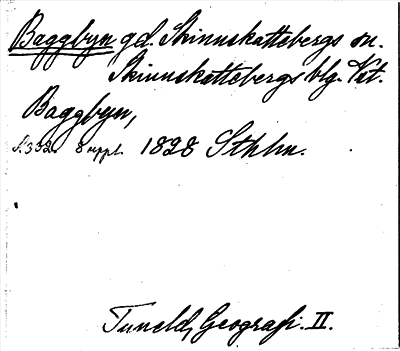 Baggbyn gd. Skinnskattebergs sn.
Skinnskattebergs blg. Vst.
Baggbyn,
s. 332. 8 uppl. 1828 Sthlm.
Tuneld, Geografi. II.